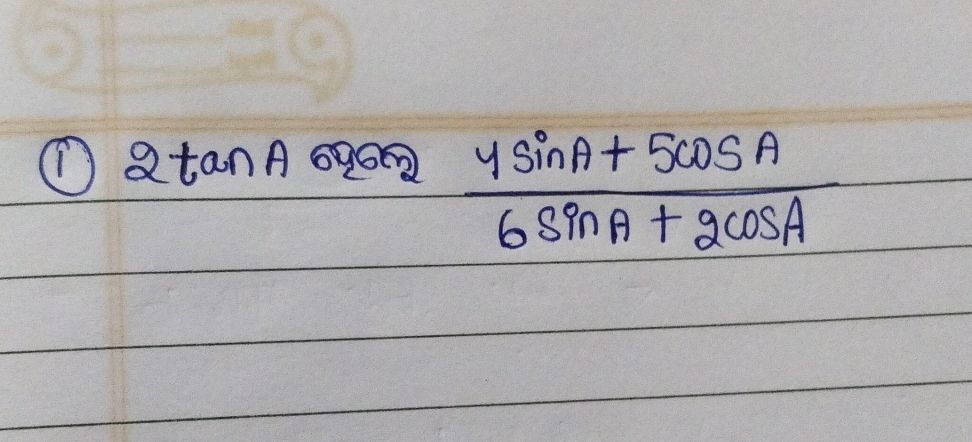 ① 2 tan A ହେଲେ 4 sin A + 5 cos A
6 sin A + 2 cos A